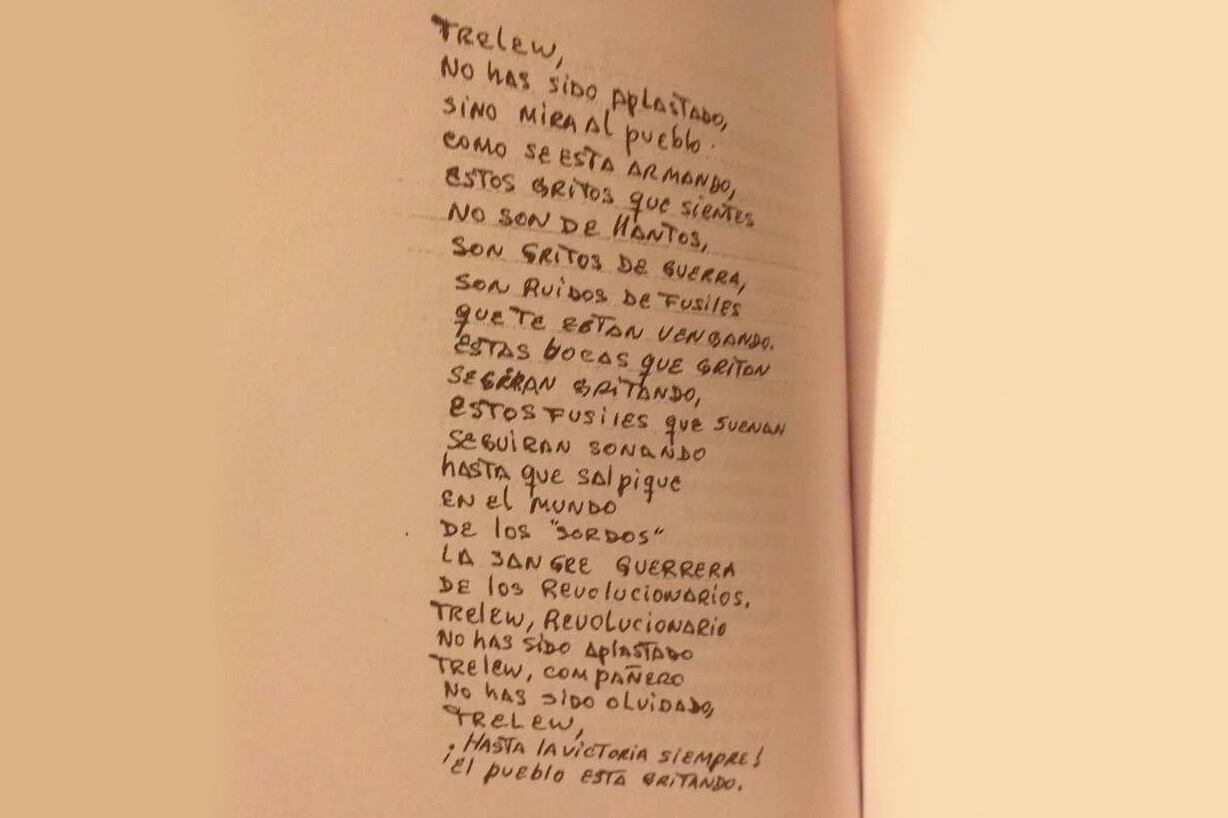 TRelew,
NO hAS SIDO AplASTADO,
SINO MIRA Al pueblo.
COMO SE ESTA ARMANDO,
ESTOS GRITOS que SIENTES
NO SON DE llANTOS,
SON GRITOS DE GUERRA,
SON RUIDOS DE FUSIlES
que TE ESTAN VENGANDO.
ESTAS bOCAS QUE GRITAN
SEGIRAN GRITANDO,
ESTOS FUSIlES que SUENAN
SEGUIRAN SONANDO
hASTA que SAlpique
EN El MUNDO
DE los "SORDOS"
LA SANGRE GUERRERA
DE los REVolucIONARIOS.
TRElEW, REVOLUCIONARIO
NO hAS SIDO AplASTADO
TRElew, COMPAÑERO
NO hAS SIDO OLVIDADO,
TRELEW,
¡HASTA lA VICTORIA SIEMPRE!
¡El pueblo ESTA GRITANDO.